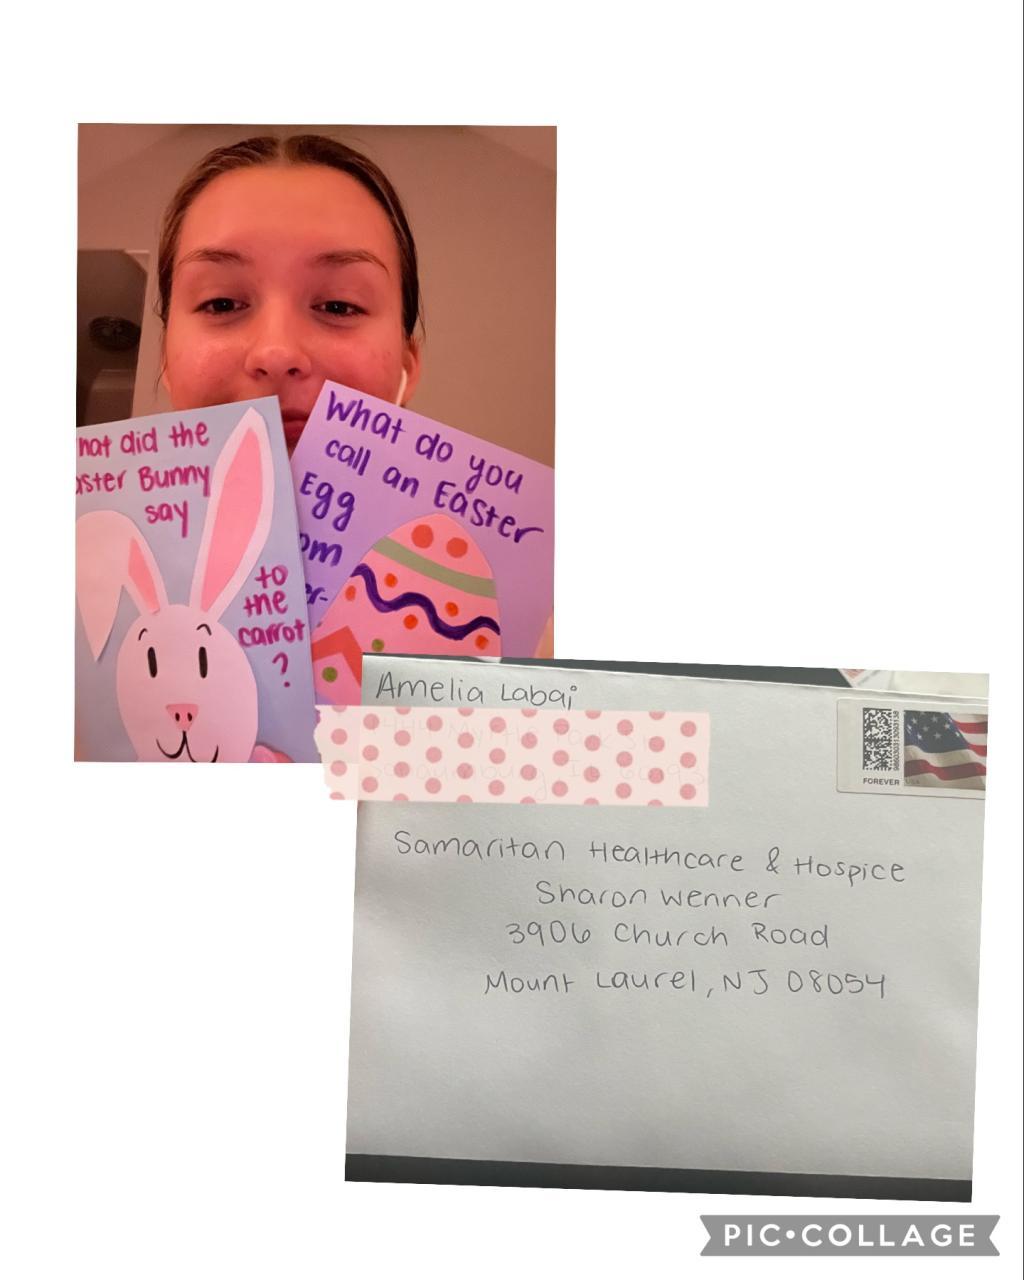 hat did the
aster Bunny
say
to
the
carrot
?
What do you
call an Easter
Egg
om
er-
Amelia Labaj
FOREVER USA
Samaritan Healthcare & Hospice
Sharon Wenner
3906 Church Road
Mount Laurel, NJ 08054
PIC•COLLAGE